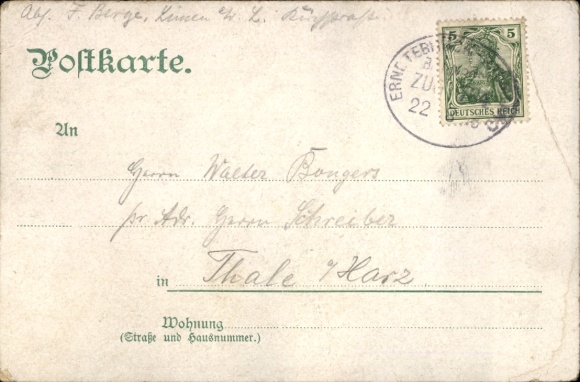 Abs. F. Berge,
Postkarte.
5 5
DEUTSCHES REICH
ERNDTEBR
ZUG
22
An
Herrn Walter Bongers
pr. Adr. Herrn Schreiber
in Thale a/Harz
Wohnung
(Straße und Hausnummer.)